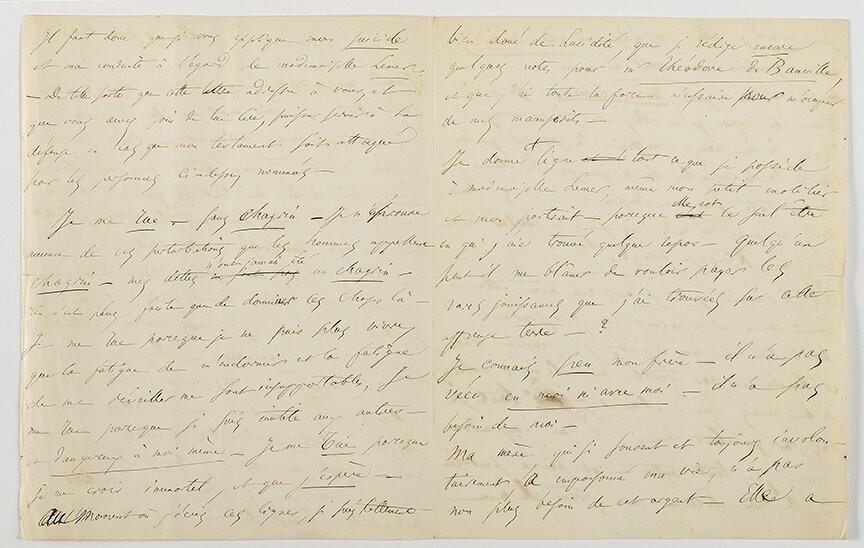 Il faut donc que je vous explique mon suicide
et ma conduite à l'égard de mademoiselle Lemer.
— De telle sorte que cette lettre adressée à vous, et
que vous aurez soin de lui lire, puisse servir à sa
défense, en cas que mon testament soit attaqué
par les personnes ci-dessus nommées —
Je me tue — sans chagrin — Je n'éprouve
aucune de ces perturbations que les hommes appellent
chagrin — mes dettes n'ont jamais été un chagrin —
rien n'est plus facile que de dominer ces choses là —
Je me tue parceque je ne puis plus vivre,
que la fatigue de m'endormir et la fatigue
de me réveiller me sont insupportables, Je
me tue parceque je suis inutile aux autres —
et dangereux à moi même — Je me tue parceque
je me crois immortel, et que j'espère —
Au moment où j'écris ces lignes, je suis tellement
bien doué de lucidité, que je rédige encore
quelques notes pour Mr Théodore de Banville,
et que j'ai toute la force nécessaire pour m'occuper
de mes manuscrits —
Je donne et lègue tout ce que je possède
à mademoiselle Lemer, même mon petit mobilier
et mon portrait — parceque elle est le seul être
en qui j'aie trouvé quelque repos — Quelqu'un
peut-il me blâmer de vouloir payer les
rares jouissances que j'ai trouvées sur cette
affreuse terre — ?
Je connais peu mon frère — il n'a pas
vécu en moi ni avec moi — il n'a pas
besoin de moi —
Ma mère qui si souvent et toujours involon-
tairement a empoisonné ma vie, n'a pas
non plus besoin de cet argent — Elle a